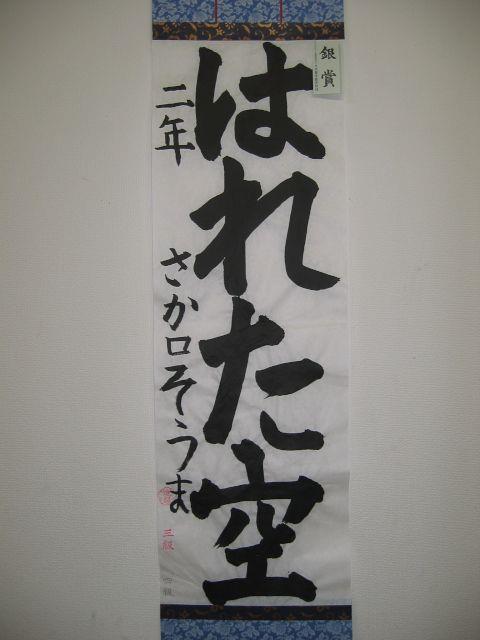 銀賞
はれた空
二年
さか口そうま
三級
四級